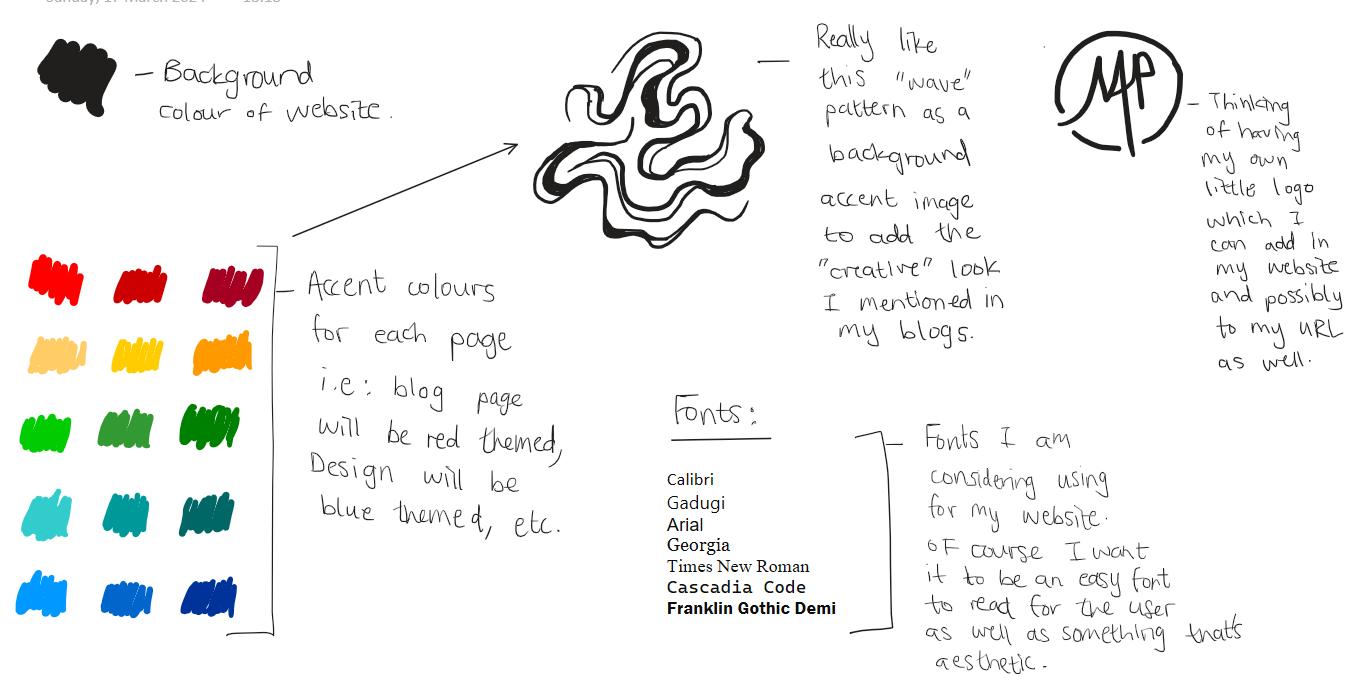 Sunday, 17 March 2024 15:15
– Background
colour of website.
Really like
this "wave"
pattern as a
background
accent image
to add the
"creative" look
I mentioned in
my blogs.
MP
– Thinking
of having
my own
little logo
which I
can add in
my website
and possibly
to my URL
as well.
Accent colours
for each page
i.e: blog page
will be red themed,
Design will be
blue themed, etc.
Fonts:
Calibri
Gadugi
Arial
Georgia
Times New Roman
Cascadia Code
Franklin Gothic Demi
Fonts I am
considering using
for my website.
Of course I want
it to be an easy font
to read for the user
as well as something that's
aesthetic.